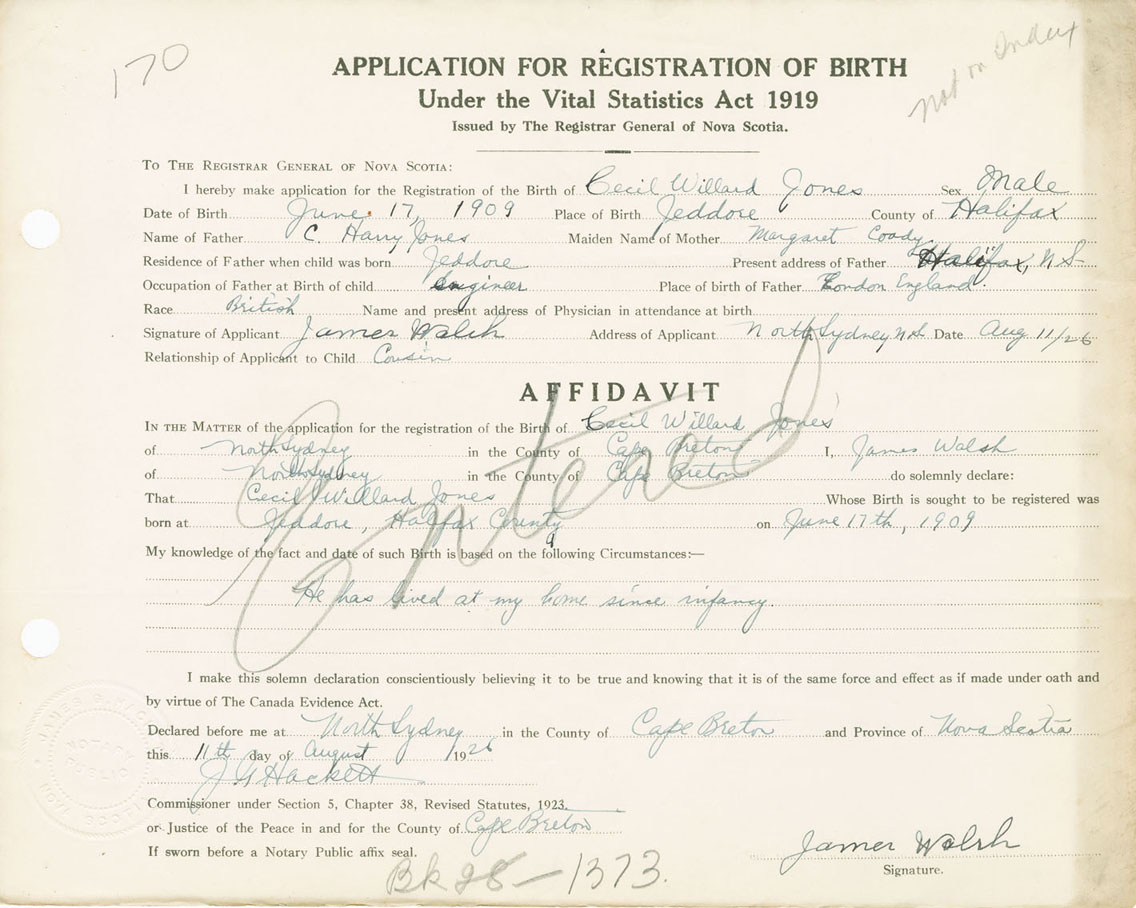 170
Not on Index
APPLICATION FOR REGISTRATION OF BIRTH
Under the Vital Statistics Act 1919
Issued by The Registrar General of Nova Scotia.
To The Registrar General of Nova Scotia:
I hereby make application for the Registration of the Birth of Cecil Willard Jones Sex Male
Date of Birth June 17, 1909 Place of Birth Jeddore County of Halifax
Name of Father C. Harry Jones Maiden Name of Mother Margaret Coady
Residence of Father when child was born Jeddore Present address of Father Halifax, N S
Occupation of Father at Birth of child Engineer Place of birth of Father London England.
Race British Name and present address of Physician in attendance at birth
Signature of Applicant James Walsh Address of Applicant North Sydney N S Date Aug 11/26
Relationship of Applicant to Child Cousin
AFFIDAVIT
In the Matter of the application for the registration of the Birth of Cecil Willard Jones
of North Sydney in the County of Cape Breton I, James Walsh
of North Sydney in the County of Cape Breton do solemnly declare:
That Cecil Willard Jones Whose Birth is sought to be registered was
born at Jeddore, Halifax County on June 17th, 1909
Entered
My knowledge of the fact and date of such Birth is based on the following Circumstances:—
He has lived at my home since infancy.
I make this solemn declaration conscientiously believing it to be true and knowing that it is of the same force and effect as if made under oath and
by virtue of The Canada Evidence Act.
Declared before me at North Sydney in the County of Cape Breton and Province of Nova Scotia
this 11th day of August 1926
J G Hackett
Commissioner under Section 5, Chapter 38, Revised Statutes, 1923.
or Justice of the Peace in and for the County of Cape Breton
If sworn before a Notary Public affix seal.
James Walsh
Signature.
Bk 28 - 1373.
NOTARY
PUBLIC